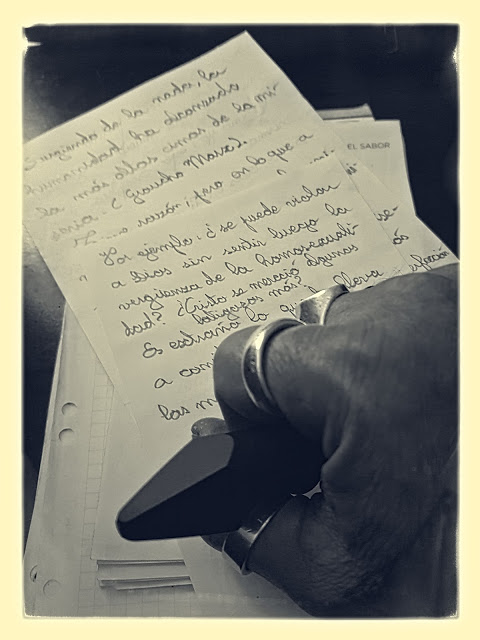 Surgiendo de la nada, la
humanidad ha alcanzado
las más altas cimas de la mi-
seria. (Groucho Marx).
razón; pero en lo que a
EL SABOR
yo
Por ejemplo: ¿se puede violar
a Dios sin sentir luego la
vergüenza de la homosexuali-
dad? ¿Cristo se mereció algunos
latigazos más?
Es extraño lo que lleva
a
las